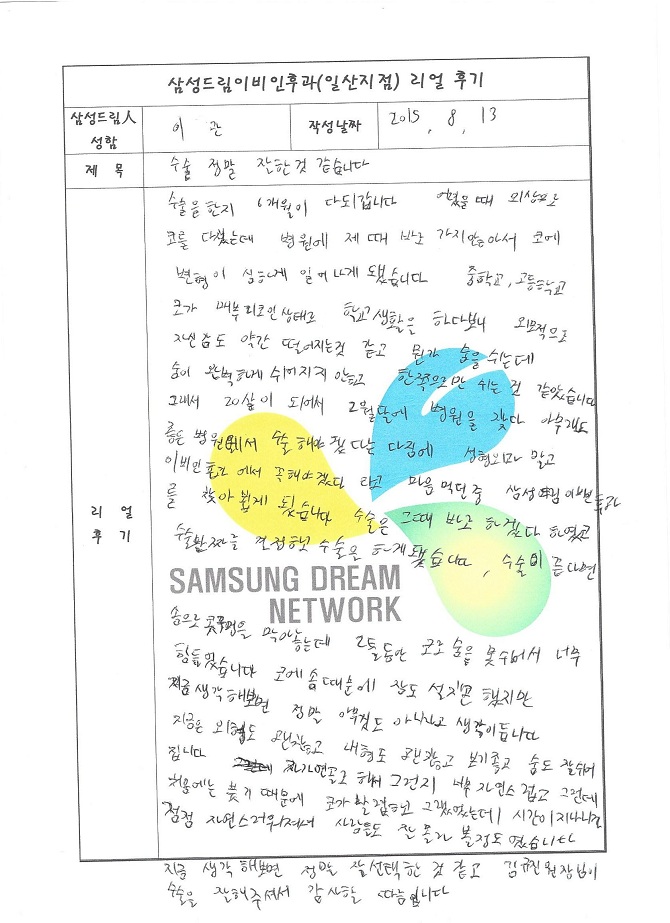 삼성드림이비인후과(일산지점) 리얼 후기
삼성드림人 성함
이 관
작성날짜
2015, 8, 13
제 목
수술 정말 잘한것 같습니다
리 얼
후 기
수술을한지 6개월이 다되갑니다 어렸을때 외상으로
코를 다쳤는데 병원에 제 때 바로 가지않아서 코에
변형이 심하게 일어나게 됐습니다 중학교, 고등학교
코가 매부리코인상태로 학교생활을 하다보니 외모적으로
자신감도 약간 떨어지는것 같고 뭔가 숨을쉬는데
숨이 완벽하게 쉬어지지 안하고 한쪽으로만 쉬는 것 같았습니다
그래서 20살이 되어서 2월달에 병원을 갔다 아무래도
큰 병원에서 수술해야겠다는 다짐에 성형외과 말고
이비인후과에서 꼭해야겠다 라고 마음먹던중 삼성드림이비인후과
를 찾아 뵙게 됬습니다 수술은 그때 바로 하겠다 하였고
수술날짜를 결정하고 수술을 하게됐습니다, 수술이 끝나면
SAMSUNG DREAM
NETWORK
솜으로 콧구멍을 막아놓는데 2틀동안 코로 숨을 못쉬어서 너무
힘들었습니다 코에 솜때문에 잠도 설치곤 했지만
지금생각해보면 정말 아무것도 아니라고 생각이듭니다
지금은 외형도 괜찮고 내형도 괜찮고 보기좋고 숨도 잘쉬어
집니다 자가연골로 해서 그런지 너무 자연스럽고 그런데
처음에는 붓기 때문에 코가 그랬었는데 시간이 지나니깐
점점 자연스러워져서 사람들도 잘 몰라 볼정도 였습니다
지금 생각 해보면 정말 잘선택한 것 같고 김규진원장님이
수술을 잘해주셔서 감사할 따름입니다